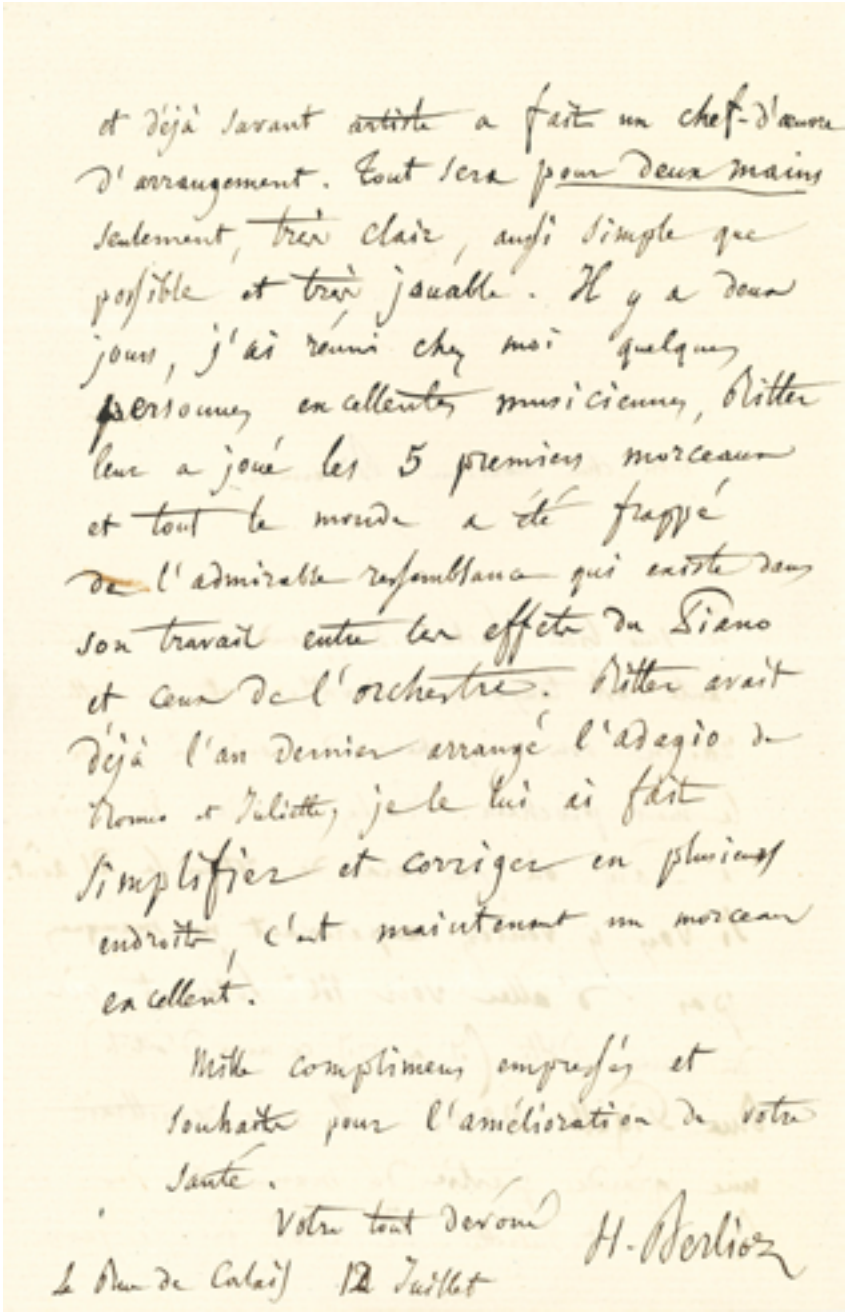 et déjà savant artiste a fait un chef-d'œuvre
d'arrangement. Tout sera pour deux mains
seulement, très clair, aussi simple que
possible et très jouable. Il y a deux
jours, j'ai réuni chez moi quelques
personnes excellentes musiciennes, Ritter
leur a joué les 5 premiers morceaux
et tout le monde a été frappé
de l'admirable ressemblance qui existe dans
son travail entre les effets du Piano
et ceux de l'orchestre. Ritter avait
déjà l'an dernier arrangé l'adagio de
Romeo et Juliette, je le lui ai fait
simplifier et corriger en plusieurs
endroits, c'est maintenant un morceau
excellent.
Mille complimens empressés et
souhaits pour l'amélioration de votre
santé.
Votre tout dévoué
H. Berlioz
4 Rue de Calais 12 Juillet